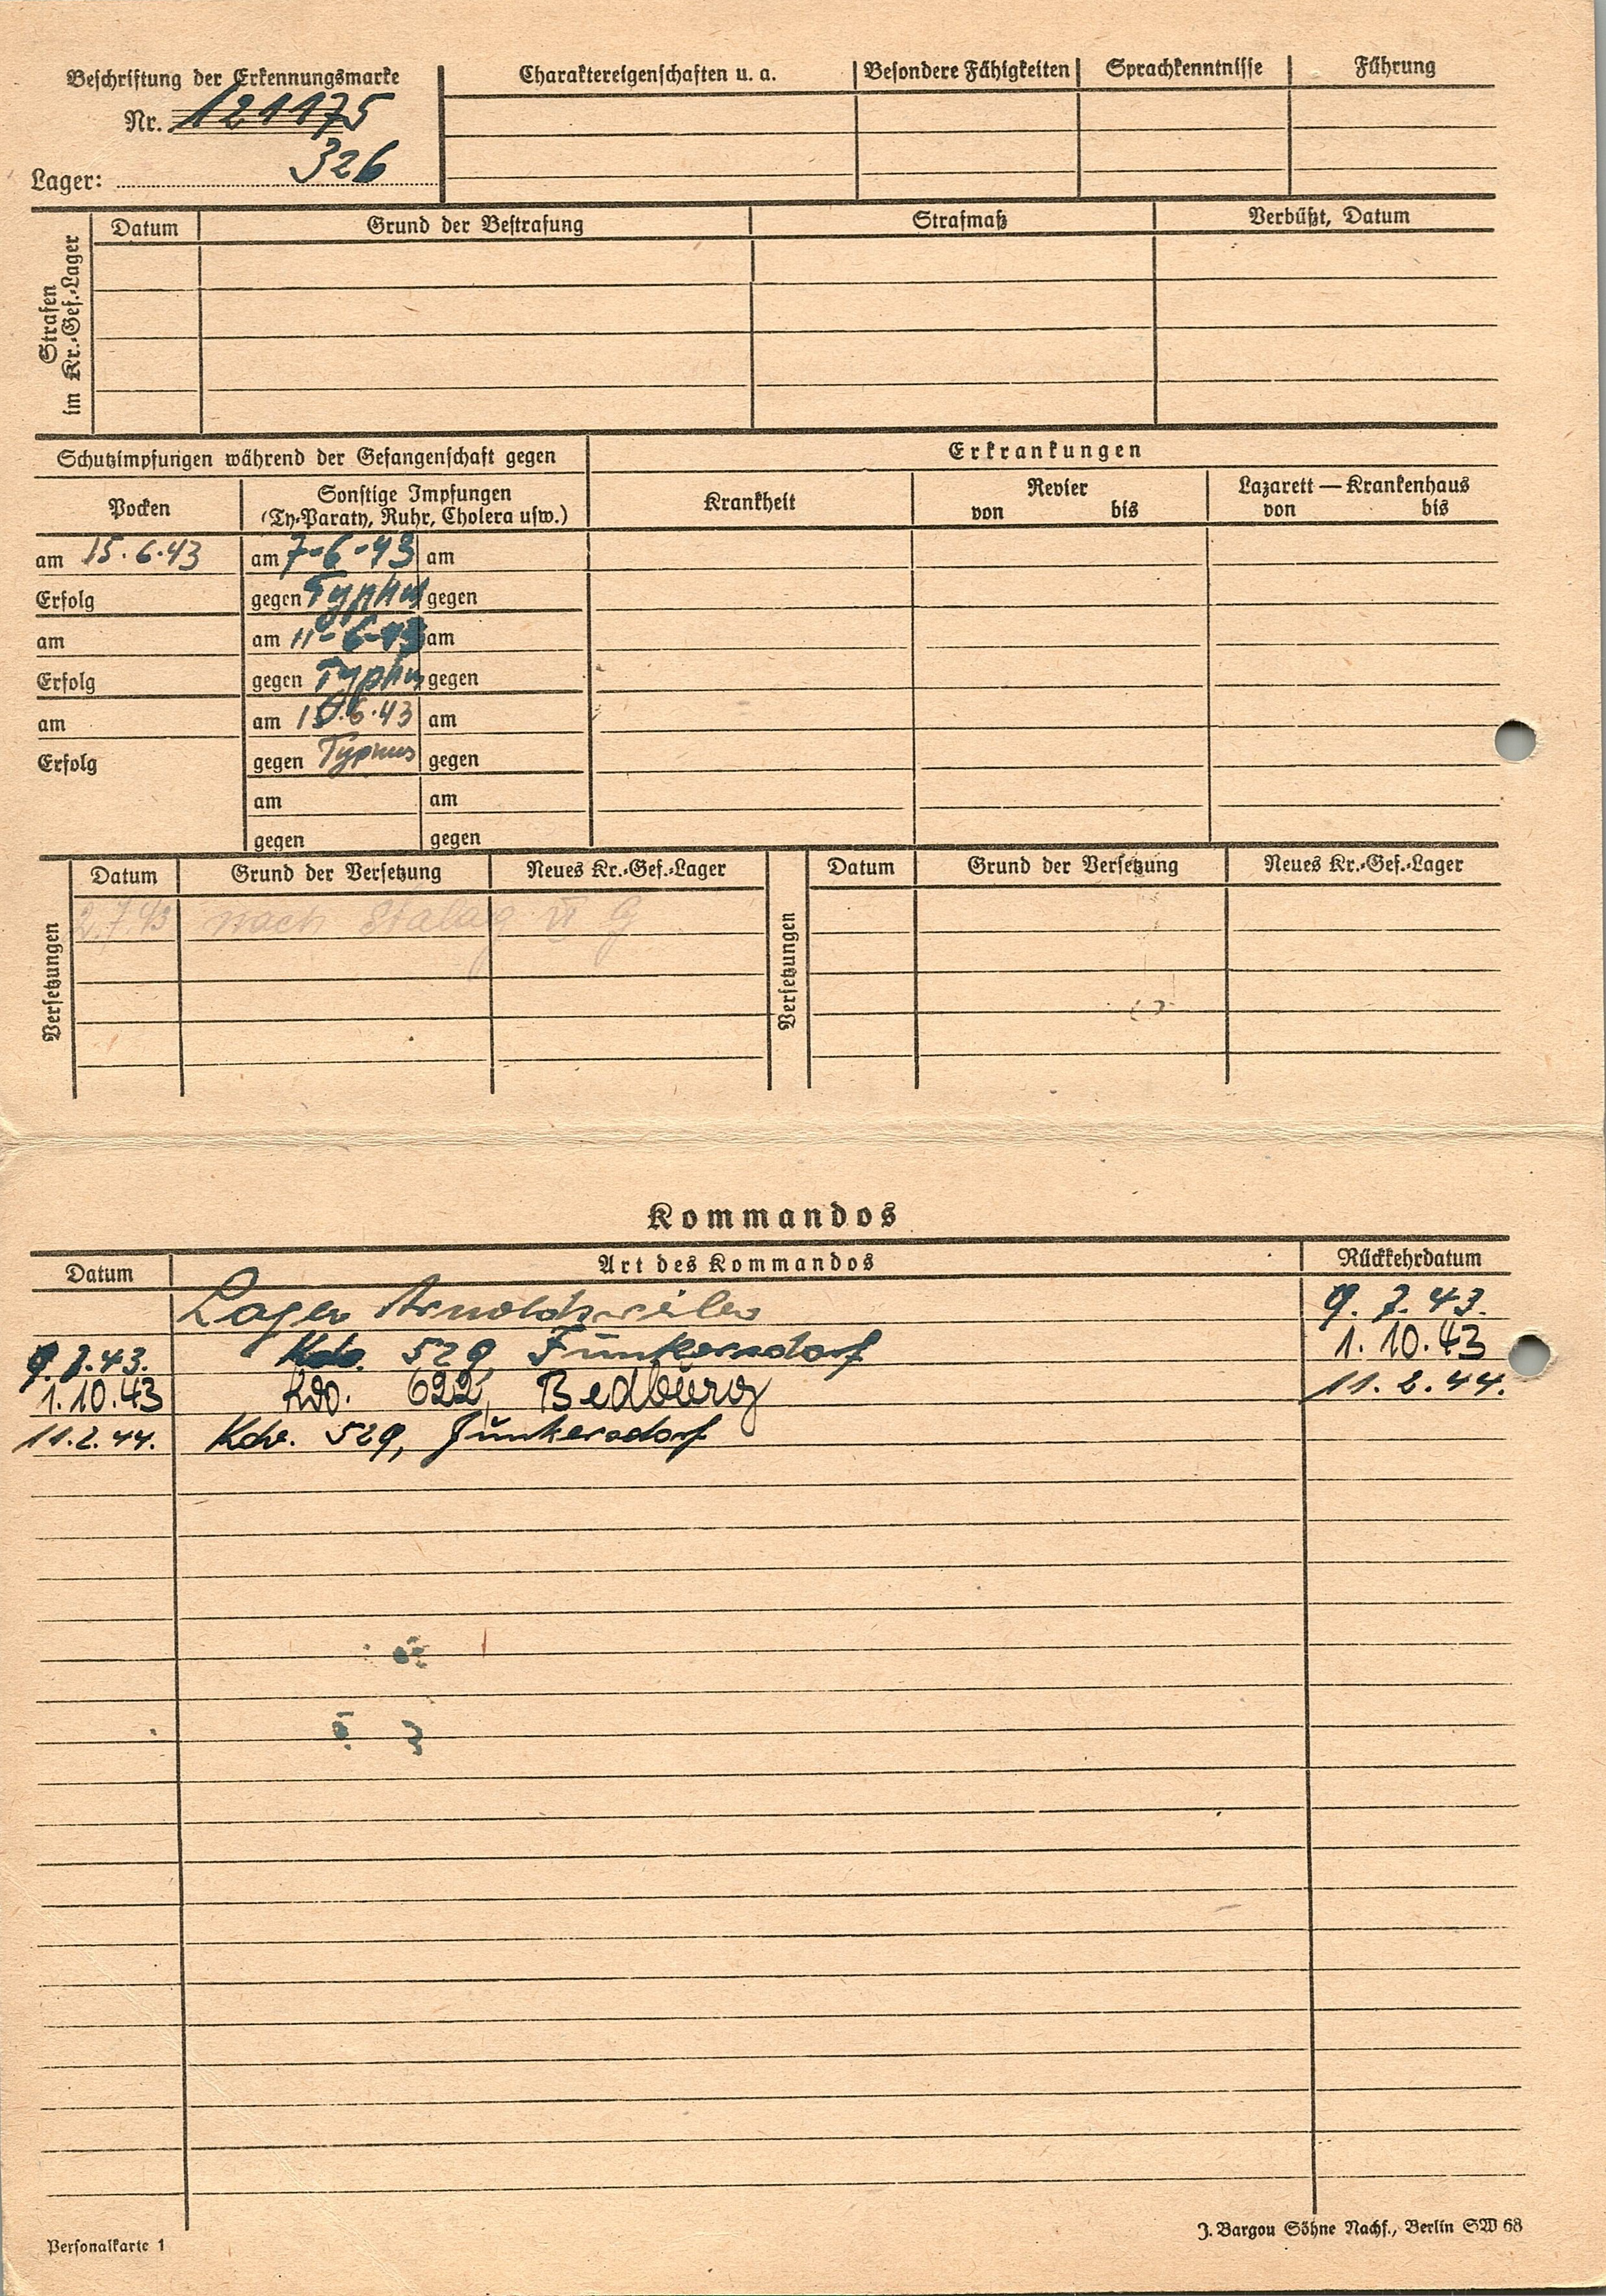 Beschriftung der Erkennungsmarke
Nr. 121175
Lager: 326
Charaktereigenschaften u. a.
Besondere Fähigkeiten
Sprachkenntnisse
Führung
Strafen im Kr.-Gef.-Lager
Datum
Grund der Bestrafung
Strafmaß
Verbüßt, Datum
Schutzimpfungen während der Gefangenschaft gegen
Erkrankungen
Pocken
Sonstige Impfungen
(Ty-Paraty, Ruhr, Cholera usw.)
Krankheit
Revier
von bis
Lazarett — Krankenhaus
von bis
am 15.6.43 am 7-6-43 am
Erfolg gegen Typhus gegen
am am 11-6-43 am
Erfolg gegen Typhus gegen
am am 15.6.43 am
Erfolg gegen Typhus gegen
am am
gegen gegen
Versetzungen
Datum Grund der Versetzung Neues Kr.-Gef.-Lager
2.7.43 nach Stalag VI G
Versetzungen
Datum Grund der Versetzung Neues Kr.-Gef.-Lager
Kommandos
Datum Art des Kommandos Rückkehrdatum
Lager Arnoldsweiler 9.7.43.
9.7.43. Kdo. 529, Junkersdorf 1.10.43
1.10.43 Kdo. 622, Bedburg 11.2.44.
11.2.44. Kdo. 529, Junkersdorf
Personalkarte 1
J. Bargou Söhne Nachf., Berlin SW 68